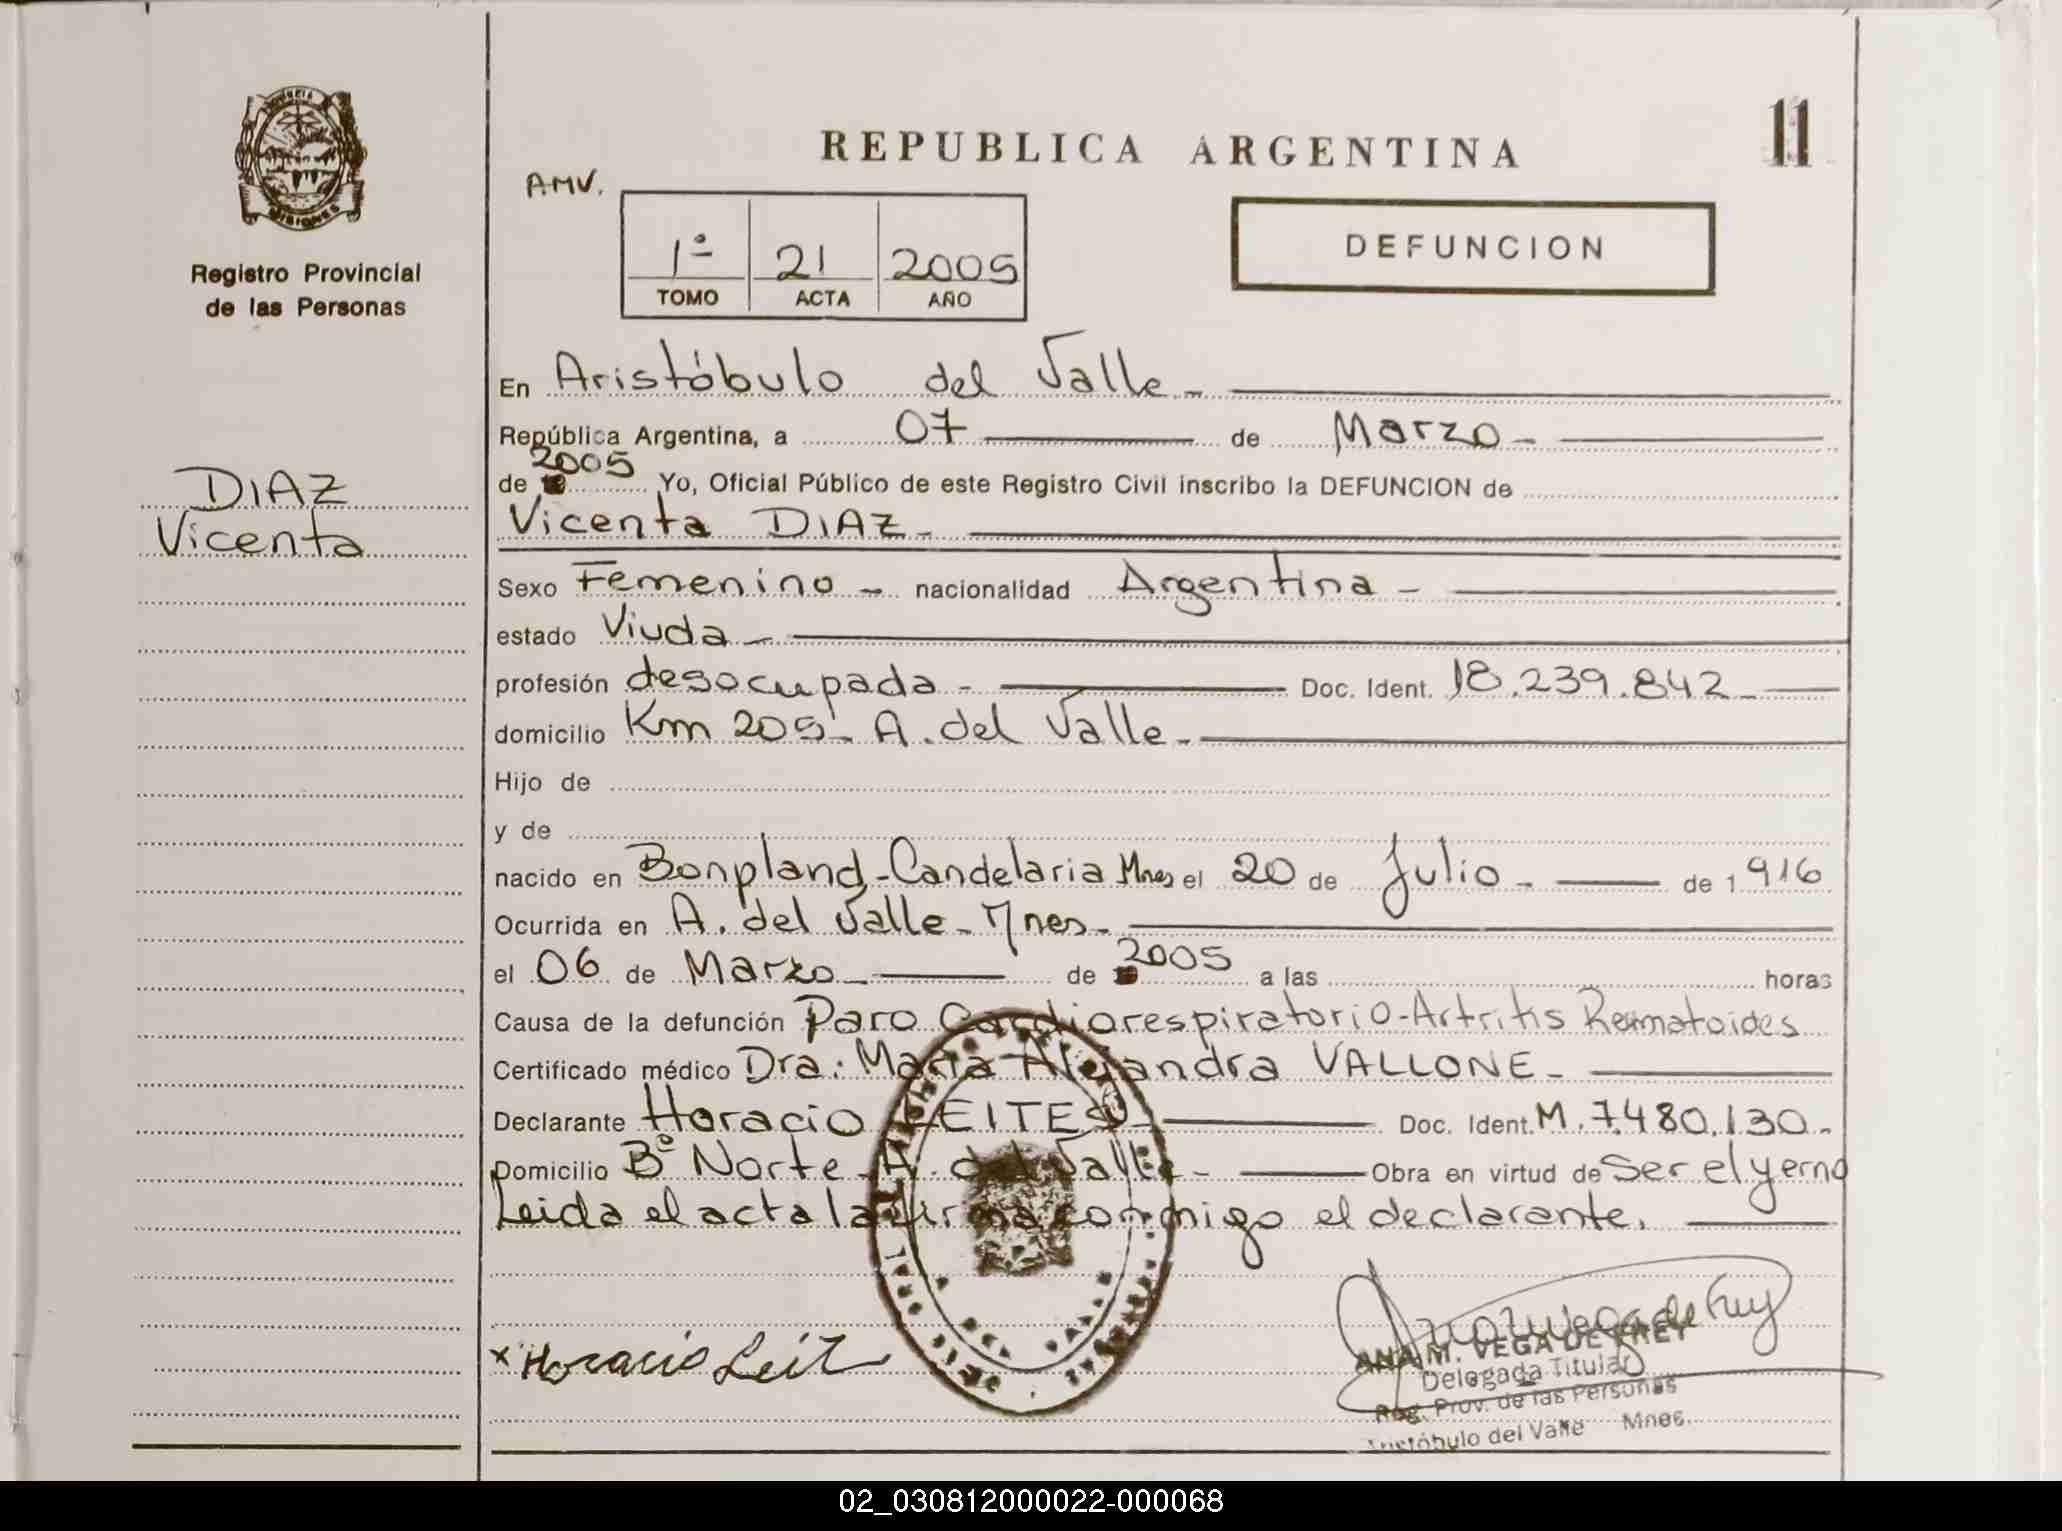 REPUBLICA ARGENTINA
11
AMV.
1º 21 2005
TOMO ACTA AÑO
DEFUNCION
PROVINCIA
MISIONES
Registro Provincial
de las Personas
DIAZ
Vicenta
En Aristóbulo del Valle -
República Argentina, a 07 de Marzo -
de 2005 Yo, Oficial Público de este Registro Civil inscribo la DEFUNCION de
Vicenta DIAZ -
Sexo Femenino - nacionalidad Argentina -
estado Viuda -
profesión desocupada - Doc. Ident. 18.239.842 -
domicilio Km 205 - A. del Valle -
Hijo de
y de
nacido en Bonpland - Candelaria Mnes el 20 de Julio - de 1916
Ocurrida en A. del Valle - Mnes -
el 06 de Marzo - de 2005 a las horas
Causa de la defunción Paro Cardiorespiratorio - Artritis Reumatoides
Certificado médico Dra: María Alejandra VALLONE -
Declarante Horacio LEITES - Doc. Ident. M. 7.480.130 -
Domicilio Bº Norte - A. del Valle - Obra en virtud de Ser el yerno
Leida el acta la firma conmigo el declarante.
x Horacio Leit
Ana M Vega de Frey
ANA M. VEGA DE FREY
Delegada Titular
Reg. Prov. de las Personas
Aristóbulo del Valle Mnes.
02_030812000022-000068